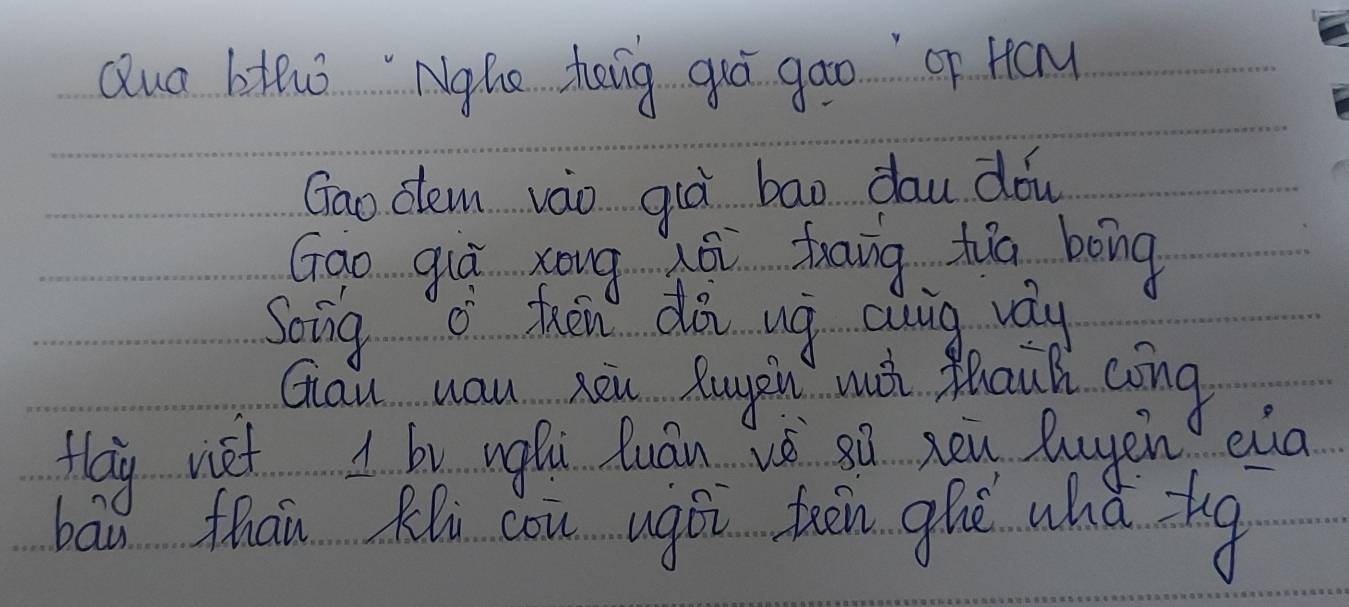 Qua bthơ "Nghe tiếng giã gạo" of HCM
Gạo đem vào giã bao đau đớn
Gạo giã xong rồi trắng tựa bông
Sống ở trên đời ng cũng vậy
Gian nan rèn luyện mới thành công
Hãy viết 1 bv nghị luận về sự rèn luyện của
bản thân khi còn ngồi trên ghế nhà trg